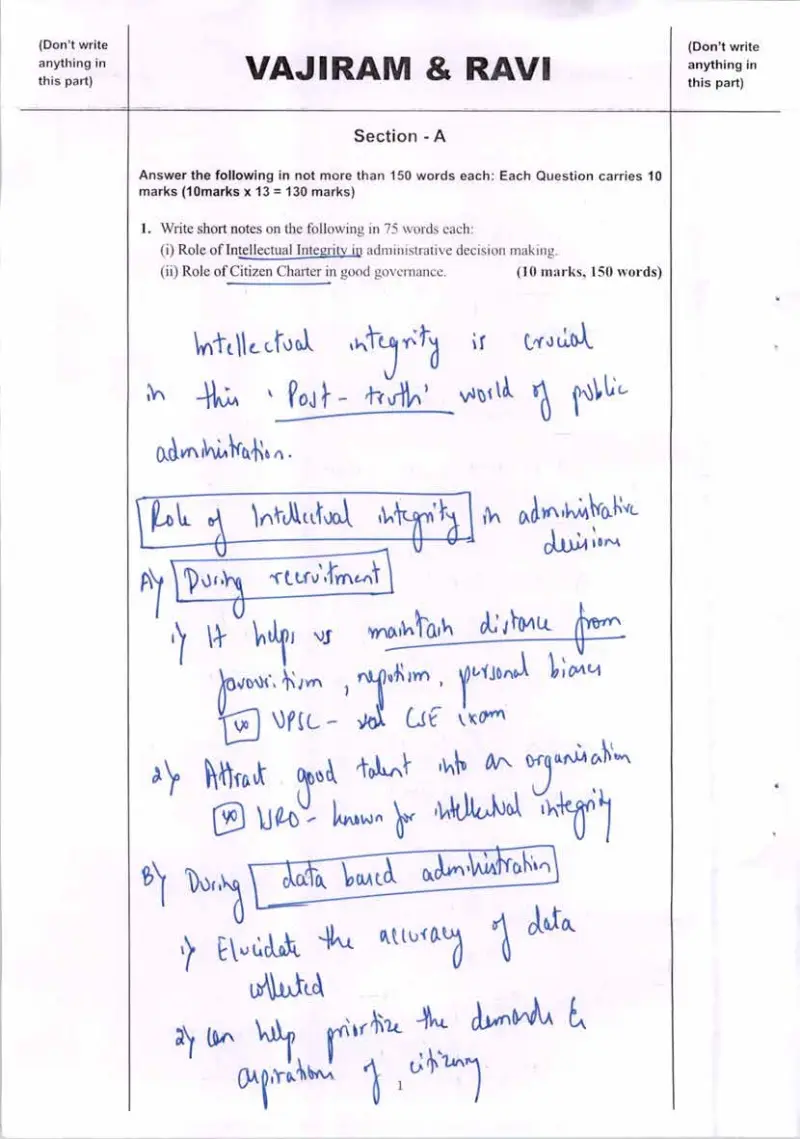 (Don't write
anything in
this part)
VAJIRAM & RAVI
(Don't write
anything in
this part)
Section - A
Answer the following in not more than 150 words each: Each Question carries 10
marks (10marks x 13 = 130 marks)
1. Write short notes on the following in 75 words each:
(i) Role of Intellectual Integrity in administrative decision making.
(ii) Role of Citizen Charter in good governance. (10 marks, 150 words)
Intellectual integrity is crucial
in this 'Post-truth' world of public
administration.
Role of Intellectual integrity in administrative
decisions
A) During recruitment
1) It helps us maintain distance from
favouritism, nepotism, personal biases
UPSC - CSE exam
2) Attract good talent into an organisation
- known for intellectual integrity
B) During data based administration
1) Elucidate the accuracy of data
collected
2) Can help prioritize the demands &
aspirations of citizenry
1